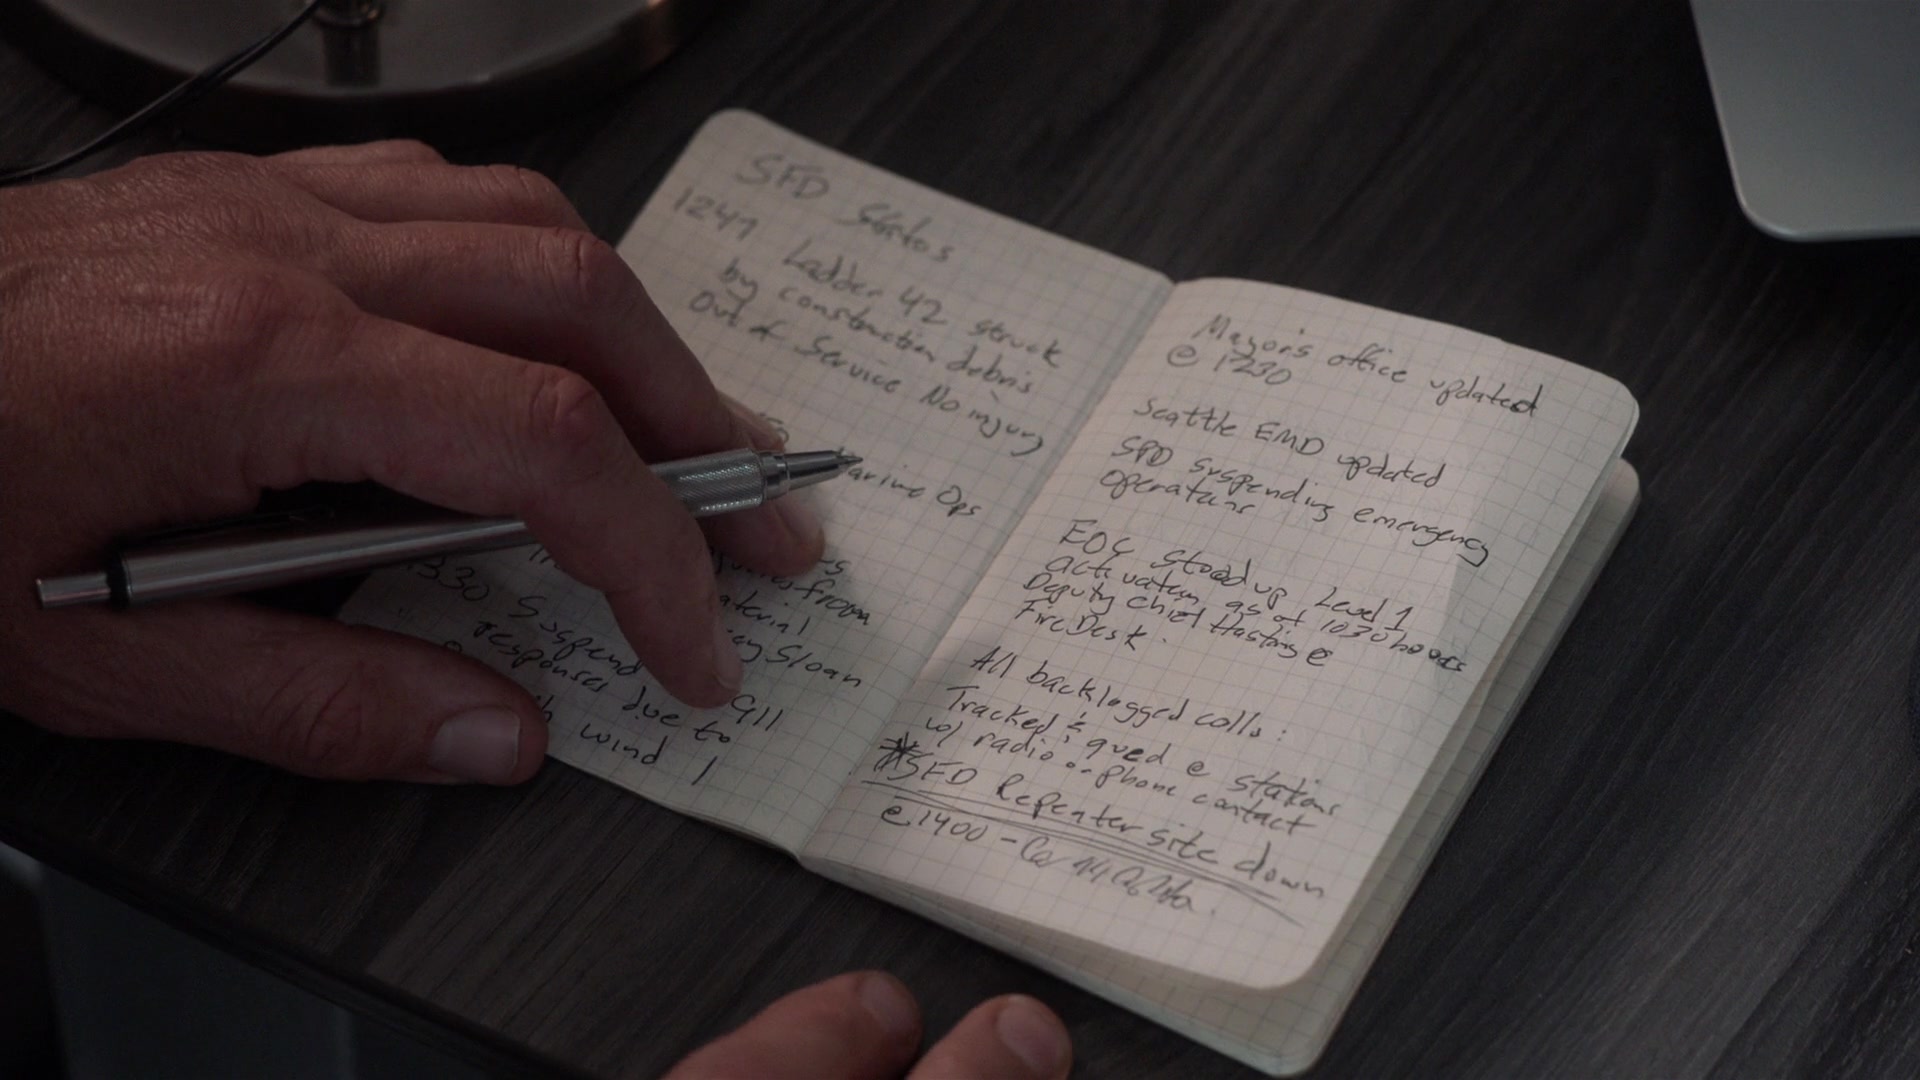 SFD Status
1247 Ladder 42 struck
by construction debris
Out of Service No injury
Marine Ops
from
aterial
Sloan
1330 Suspend 911
responses due to
wind
Mayor's office updated
@ 1230
Seattle EMD updated
SPD suspending emergency
Operations
EOC Stood up Level 1
activation as of 1030 hours
Deputy Chief Hastings @
Fire Desk.
All backlogged calls:
Tracked & qued @ stations
w/ radio or phone contact
*SFD Repeater site down
@ 1400 -